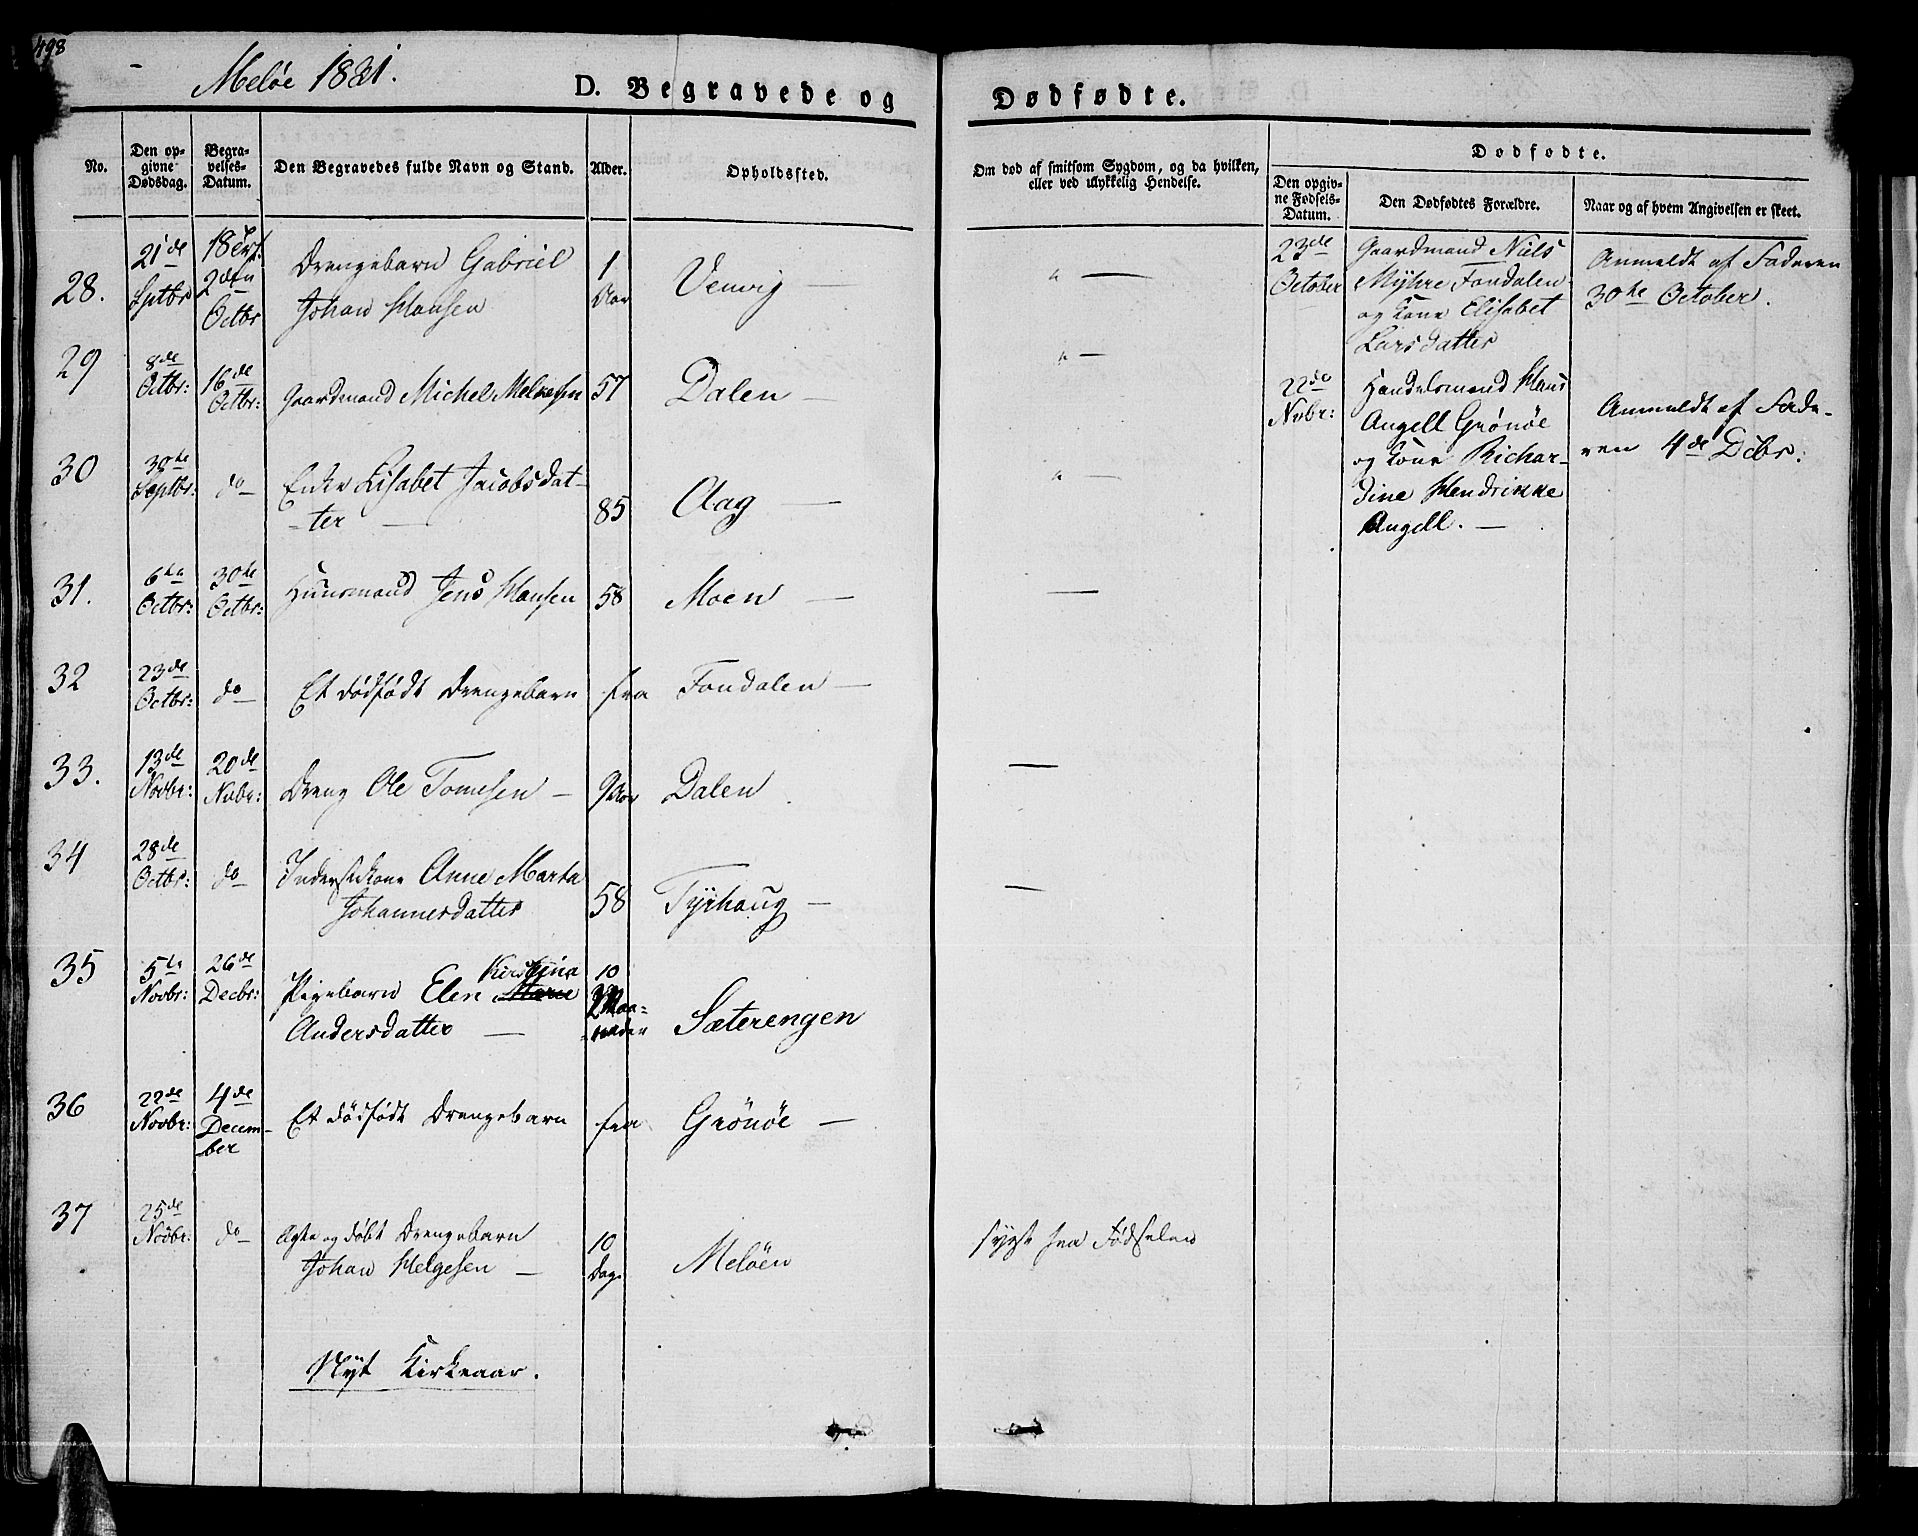 498
Meløe 1831.
D. Begravede og Dødfødte.
No.
Den op-
givne
Dødsdag.
Begra-
velses-
Datum.
Den Begravedes fulde Navn og Stand.
Alder.
Opholdssted.
Om død af smitsom Sygdom, og da hvilken,
eller ved ulykkelig Hendelse.
Dødfødte.
Den opgiv-
ne Fødsels-
Datum.
Den Dødfødtes Forældre.
Naar og af hvem Angivelsen er skeet.
28.
21de
Sptbr
2den
Octbr
Drengebarn Gabriel
Johan Hansen
1
Aar
Venvig —
" —
29
8de
Octbr:
16de
Octbr:
Gaardmand Michel Melkesen
57
Dalen —
" —
30
30te
Septbr:
do
Enke Lisabet Jacobsdat-
-ter —
85
Aag —
" —
31.
6te
Octbr:
30te
Octbr:
Huusmand Jens Hansen
58
Moen —
—
32
23de
Octbr:
do
Et dødfødt Drengebarn
fra
Fondalen —
33.
13de
Novbr:
20de
Nvbr:
Dreng Ole Tomesen —
9 Aar
Dalen
—
34
28de
Octbr:
do
Inderstkone Anne Marta
Johannesdatter
58
Tyrhaug —
—
35
5te
Novbr:
26de
Decbr:
Kirstina
Pigebarn Elen Marie
Andersdatter —
10
Maa-
-neder
Sæterengen
36
22de
Novbr:
4de
Decem-
ber
Et dødfødt Drengebarn
fra
Grönöe —
37
25de
Novbr:
do
Ægte og døbt Drengebarn
Johan Helgesen —
10
Dage
Melöen
sygt fra Fødselen
Nyt Kirkeaar.
23de
October
Gaardmand Niels
Myhre Fondalen
og Kone Elisabet
Larsdatter
Anmeldt af Faderen
30te October.
22de
Nvbr:
Handelsmand Hans
Angell Grönöe
og Kone Richar-
dine Hendrikke
Angell. —
Anmeldt af Fade-
ren 4de Dcbr: